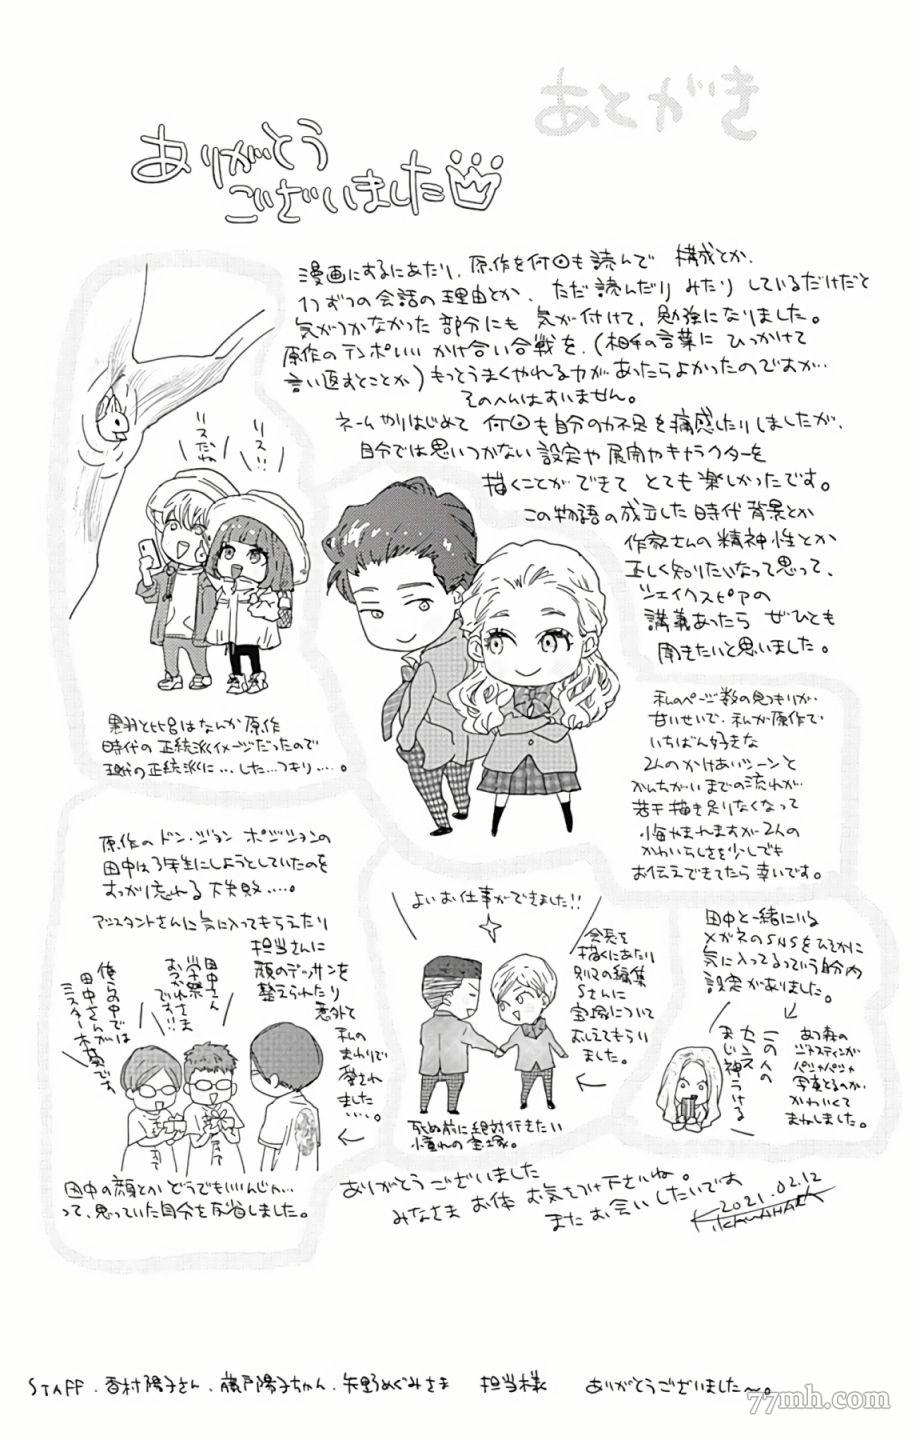 あとがき
ありがとう
ございました
漫画にするにあたり、原作を何回も読んで 構成とか、
1つずつの会話の理由とか、ただ読んだり みたり しているだけだと
気がつかなかった部分にも 気が付けて、勉強になりました。
原作のテンポいい かけ合い合戦を、(相手の言葉に ひっかけて
言い返すとことか)もっとうまくやれる力が あったらよかったのですが…
そのへんはすいません。
ネームやりはじめて 何回も自分の力不足を痛感したりしましたが、
自分では思いつかない 設定や展開やキャラクターを
描くことができて とても楽しかったです。
この物語の成立した時代背景とか
作家さんの精神性とか
正しく知りたいなって思って、
シェイクスピアの
講義あったら ぜひとも
聞きたいと思いました。
リス!!
リスだね
はなんか原作
時代の正統派イメージだったので
現代の正統派に…した…つもり…。
私のページ数の見きりが
甘いせいで、私が原作で
いちばん好きな
2人のかけあいシーンと
かんちがいまでの流れが
若干描き足りなくなって
悔やまれますが2人の
かわいらしさを少しでも
お伝えできてたら幸いです。
原作のドン・ジョン ポジションの
田中は3年生にしようとしていたのを
すっかり忘れる大失敗……。
アシスタントさんに気に入ってもらえたり
担当さんに
顔のデッサンを
整えられたり
意外と
私の
まわりで
愛され
ました
……。
田中さん
学祭
おつかれさま
です!!
俺らの中では
田中さんが
ミスター木葉です
田中の顔とか どうでもいいんじゃ…
って、思っていた自分を反省しました。
よいお仕事ができました!!
会長を
描くにあたり
別の編集
Sさんに
宝塚について
おしえてもらい
ました。
死ぬ前に絶対行きたい
憧れの宝塚。
田中と一緒にいる
メガネのSNSをひそかに
気に入ってるっていう自分内
設定がありました。
この人の
センス
まじ神うける
あつ森の
ジャスティンが
パシャパシャ
写真とるのが
かわいくて
まねしました。
ありがとうございました
みなさま お体 お気をつけ下さいね。
またお会いしたいです
2021.02.12
KITAWAHARA
STAFF.香村陽子さん、藤戸陽子ちゃん、矢野めぐみさま 担当様 ありがとうございました〜。
77mh.com